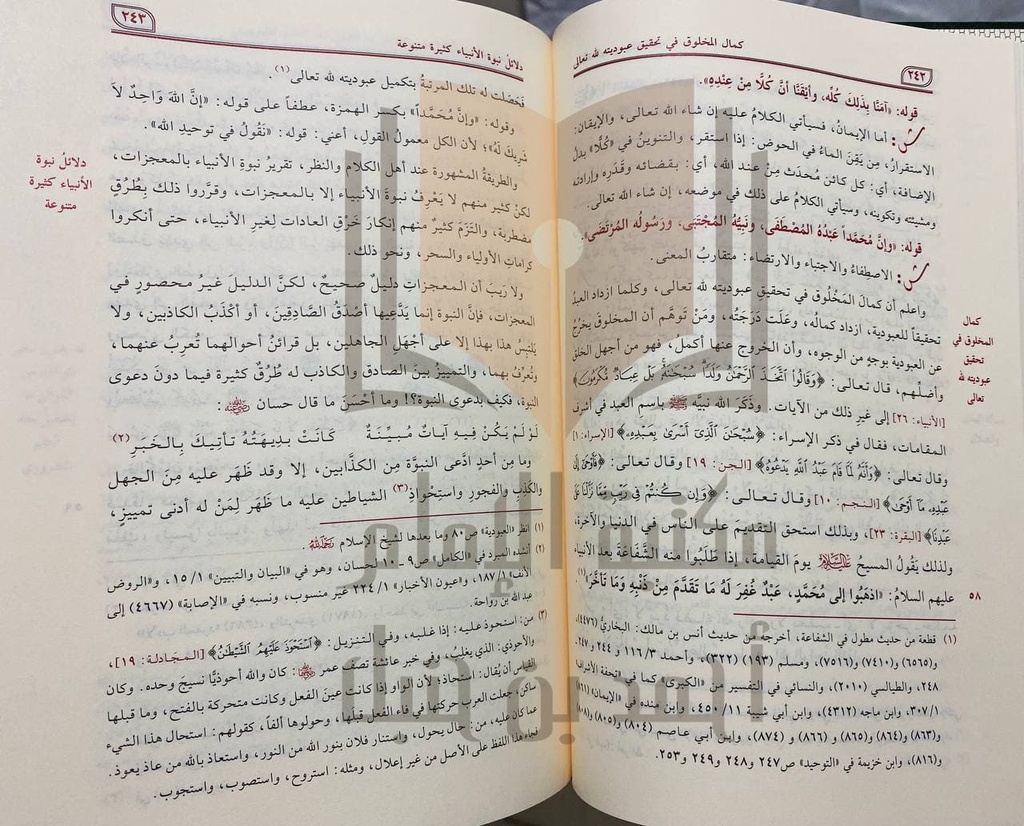 ٢٤٢
كمال المخلوق في تحقيق عبوديته لله تعالى
قوله: «آمَنَّا بِذلِكَ كُلِّه، وأَيْقَنَّا أنَّ كُلًّا مِنْ عِنْدِهِ».
ش: أما الإيمانُ، فسيأتي الكلامُ عليه إن شاء الله تعالى، والإيقان:
الاستقرارُ، مِن يَقِنَ الماءُ في الحوض: إذا استقر، والتنوينُ في «كُلًّا» بدلُ
الإضافة، أي: كل كائن مُحدَثٍ مِنْ عند الله، أي: بقضائه وقَدَرِهِ وإرادته
ومشيئته وتكوينه، وسيأتي الكلامُ على ذلك في موضعه، إن شاء الله تعالى.
قوله: «وإنَّ مُحَمَّداً عَبْدُهُ المُصْطَفَى، ونَبِيُّهُ المُجْتَبَى، ورَسُولُه المُرْتَضَى».
ش: الاصطِفاءُ والاجتباء والارتضاء: متقاربُ المعنى.
واعلم أن كمالَ المَخْلُوقِ في تحقيقِ عبوديته لله تعالى، وكلما ازداد العبدُ
تحقيقاً للعبودية، ازداد كمالُه، وعَلَت دَرَجَتُه، ومَنْ تَوهَّم أن المخلوقَ يخرُجُ
عن العبودية بوجهٍ من الوجوه، وأن الخروج عنها أكملُ، فهو من أجهلِ الخلق
وأضلِّهم، قال تعالى: ﴿وَقَالُوا اتَّخَذَ الرَّحْمَنُ وَلَدًا سُبْحَانَهُ بَلْ عِبَادٌ مُّكْرَمُونَ﴾
[الأنبياء: ٢٦] إلى غير ذلك من الآيات. وذَكَرَ الله نبيَّه ﷺ باسم العبد في أشرف
المقامات، فقال في ذكر الإسراء: ﴿سُبْحَانَ الَّذِي أَسْرَى بِعَبْدِهِ﴾ [الإسراء: ١]
وقال تعالى: ﴿وَأَنَّهُ لَمَّا قَامَ عَبْدُ اللَّهِ يَدْعُوهُ﴾ [الجن: ١٩] وقال تعالى: ﴿فَأَوْحَى إِلَى
عَبْدِهِ مَا أَوْحَى﴾ [النجم: ١٠] وقال تعالى: ﴿وَإِن كُنتُمْ فِي رَيْبٍ مِّمَّا نَزَّلْنَا عَلَى
عَبْدِنَا﴾ [البقرة: ٢٣]، وبذلك استحق التقديمَ على الناس في الدنيا والآخرة،
ولذلك يَقُولُ المسيحُ عليه السلام يومَ القيامة، إذا طَلَبُوا منه الشَّفَاعَةَ بعد الأنبياء
عليهم السلامُ: «اذهَبُوا إلى مُحَمَّدٍ، عَبْدٌ غُفِرَ لَهُ مَا تَقَدَّمَ مِنْ ذَنْبِهِ وَمَا تأخَّرَ»(١)
٥٨
كمال
المخلوق في
تحقيق
عبوديته لله
تعالى
(١) قطعة من حديث مطول في الشفاعة، أخرجه من حديث أنس بن مالك: البخاريُّ (٤٤٧٦)
و(٦٥٦٥) و(٧٤١٠) و(٧٥١٦)، ومسلم (١٩٣) (٣٢٢)، وأحمد ١١٦/٣ و ٢٤٤ و٢٤٧ـ
٢٤٨، والطيالسي (٢٠١٠)، والنسائي في التفسير من «الكبرى» كما في «تحفة الأشراف»
٣٠٧/١، وابن ماجه (٤٣١٢)، وابن أبي شيبة ٤٥٠/١١، وابن منده في «الإيمان» (٨٦١)
و(٨٦٣) و(٨٦٤) و(٨٦٥) و (٨٦٦) و (٨٧٤)، وابن أبي عاصم (٨٠٤) و(٨٠٥) و(٨٠٨)
و(٨١٦)، وابن خزيمة في «التوحيد» ص٢٤٧ و٢٤٨ و٢٤٩ و٢٥٣.
دلائلُ نبوة الأنبياء كثيرة متنوعة
٢٤٣
فَحَصَلت له تلك المرتبةُ بتكميل عبوديته لله تعالى(١).
وقوله: «وإنَّ مُحَمَّداً» بكسر الهمزة، عطفاً على قوله: «إنَّ اللهَ وَاحِدٌ لاَ
شَرِيكَ لَهُ»؛ لأن الكل معمولُ القولِ، أعني: قوله: «نَقُولُ في توحيدِ الله».
والطريقةُ المشهورة عند أهل الكلام والنظر، تقريرُ نبوةِ الأنبياء بالمعجزات،
لكنْ كثير منهم لا يَعْرِفُ نبوةَ الأنبياء إلا بالمعجزات، وقرَّروا ذلك بِطُرُقٍ
مضطربة، والتَزَمَ كثيرٌ منهم إنكارَ خَرْقِ العادات لِغيرِ الأنبياء، حتى أنكروا
كراماتِ الأولياء والسحر، ونحو ذلك.
ولا رَيبَ أن المعجزاتِ دليلٌ صحيحٌ، لكنَّ الدليلَ غيرُ محصورٍ في
المعجزات، فإنَّ النبوةَ إنما يَدَّعِيها أصْدَقُ الصَّادِقِينَ، أو أكْذَبُ الكاذبين، ولا
يَلتبِسُ هذا بهذا إلا على أجْهَلِ الجاهلين، بل قرائنُ أحوالهما تُعرِبُ عنهما،
وتُعرِّفُ بهما، والتمييزُ بينَ الصادق والكاذب له طُرُقٌ كثيرة فيما دونَ دعوى
النبوة، فكيف بدعوى النبوة؟! وما أحْسَنَ ما قال حسان رضي الله عنه:
لَوْ لَمْ يَكُنْ فِيهِ آيَاتٌ مُبِيِّنَةٌ كَانَتْ بَدِيهَتُهُ تَأْتِيكَ بِالخَبَرِ (٢)
وما مِن أحدٍ ادَّعى النبوَّة مِن الكذَّابين، إلا وقد ظَهَر عليه مِنَ الجهل
والكَذِبِ والفجورِ واستِحْواذِ(٣) الشياطين عليه ما ظَهَر لِمَنْ له أدنى تمييزٍ،
دلائلُ نبوة
الأنبياء كثيرة
متنوعة
(١) انظر «العبودية» ص٨٠ وما بعدها لشيخ الإسلام رحمه الله.
(٢) أنشده المبرد في «الكامل» ص٩ ـ ١٠ لحسان، وهو في «البيان والتبيين» ١٥/١، و«الروض
الأنف» ١٨٧/١، و«عيون الأخبار» ٢٢٤/١ غير منسوب، ونسبه في «الإصابة» (٤٦٦٧) إلى
عبد الله بن رواحة.
(٣) من: استحوذ عليه: إذا غلبه، وفي التنزيل: ﴿اسْتَحْوَذَ عَلَيْهِمُ الشَّيْطَانُ﴾ [المجادلة: ١٩]،
والأحوذي: الذي يغلبُ، وفي خبر عائشة تصف عمر رضي الله عنه: كان والله أحوذيًّا نسيجَ وحده. وكان
القياس أن يُقال: استحاذ؛ لأن الواو إذا كانت عينَ الفعل وكانت متحركة بالفتح، وما قبلها
ساكن، جعلت العرب حركتها في فاء الفعل قبلَها، وحولوها ألفاً، كقولهم: استحال هذا الشيء
عما كان عليه، من: حال يحول، واستنار فلان بنور الله من النور، واستعاذ بالله من عاذ يعوذ.
فجاء هذا اللفظ على الأصل من غير إعلال، ومثله: استروح، واستصوب، واستجوب.
مكتبة الإمام